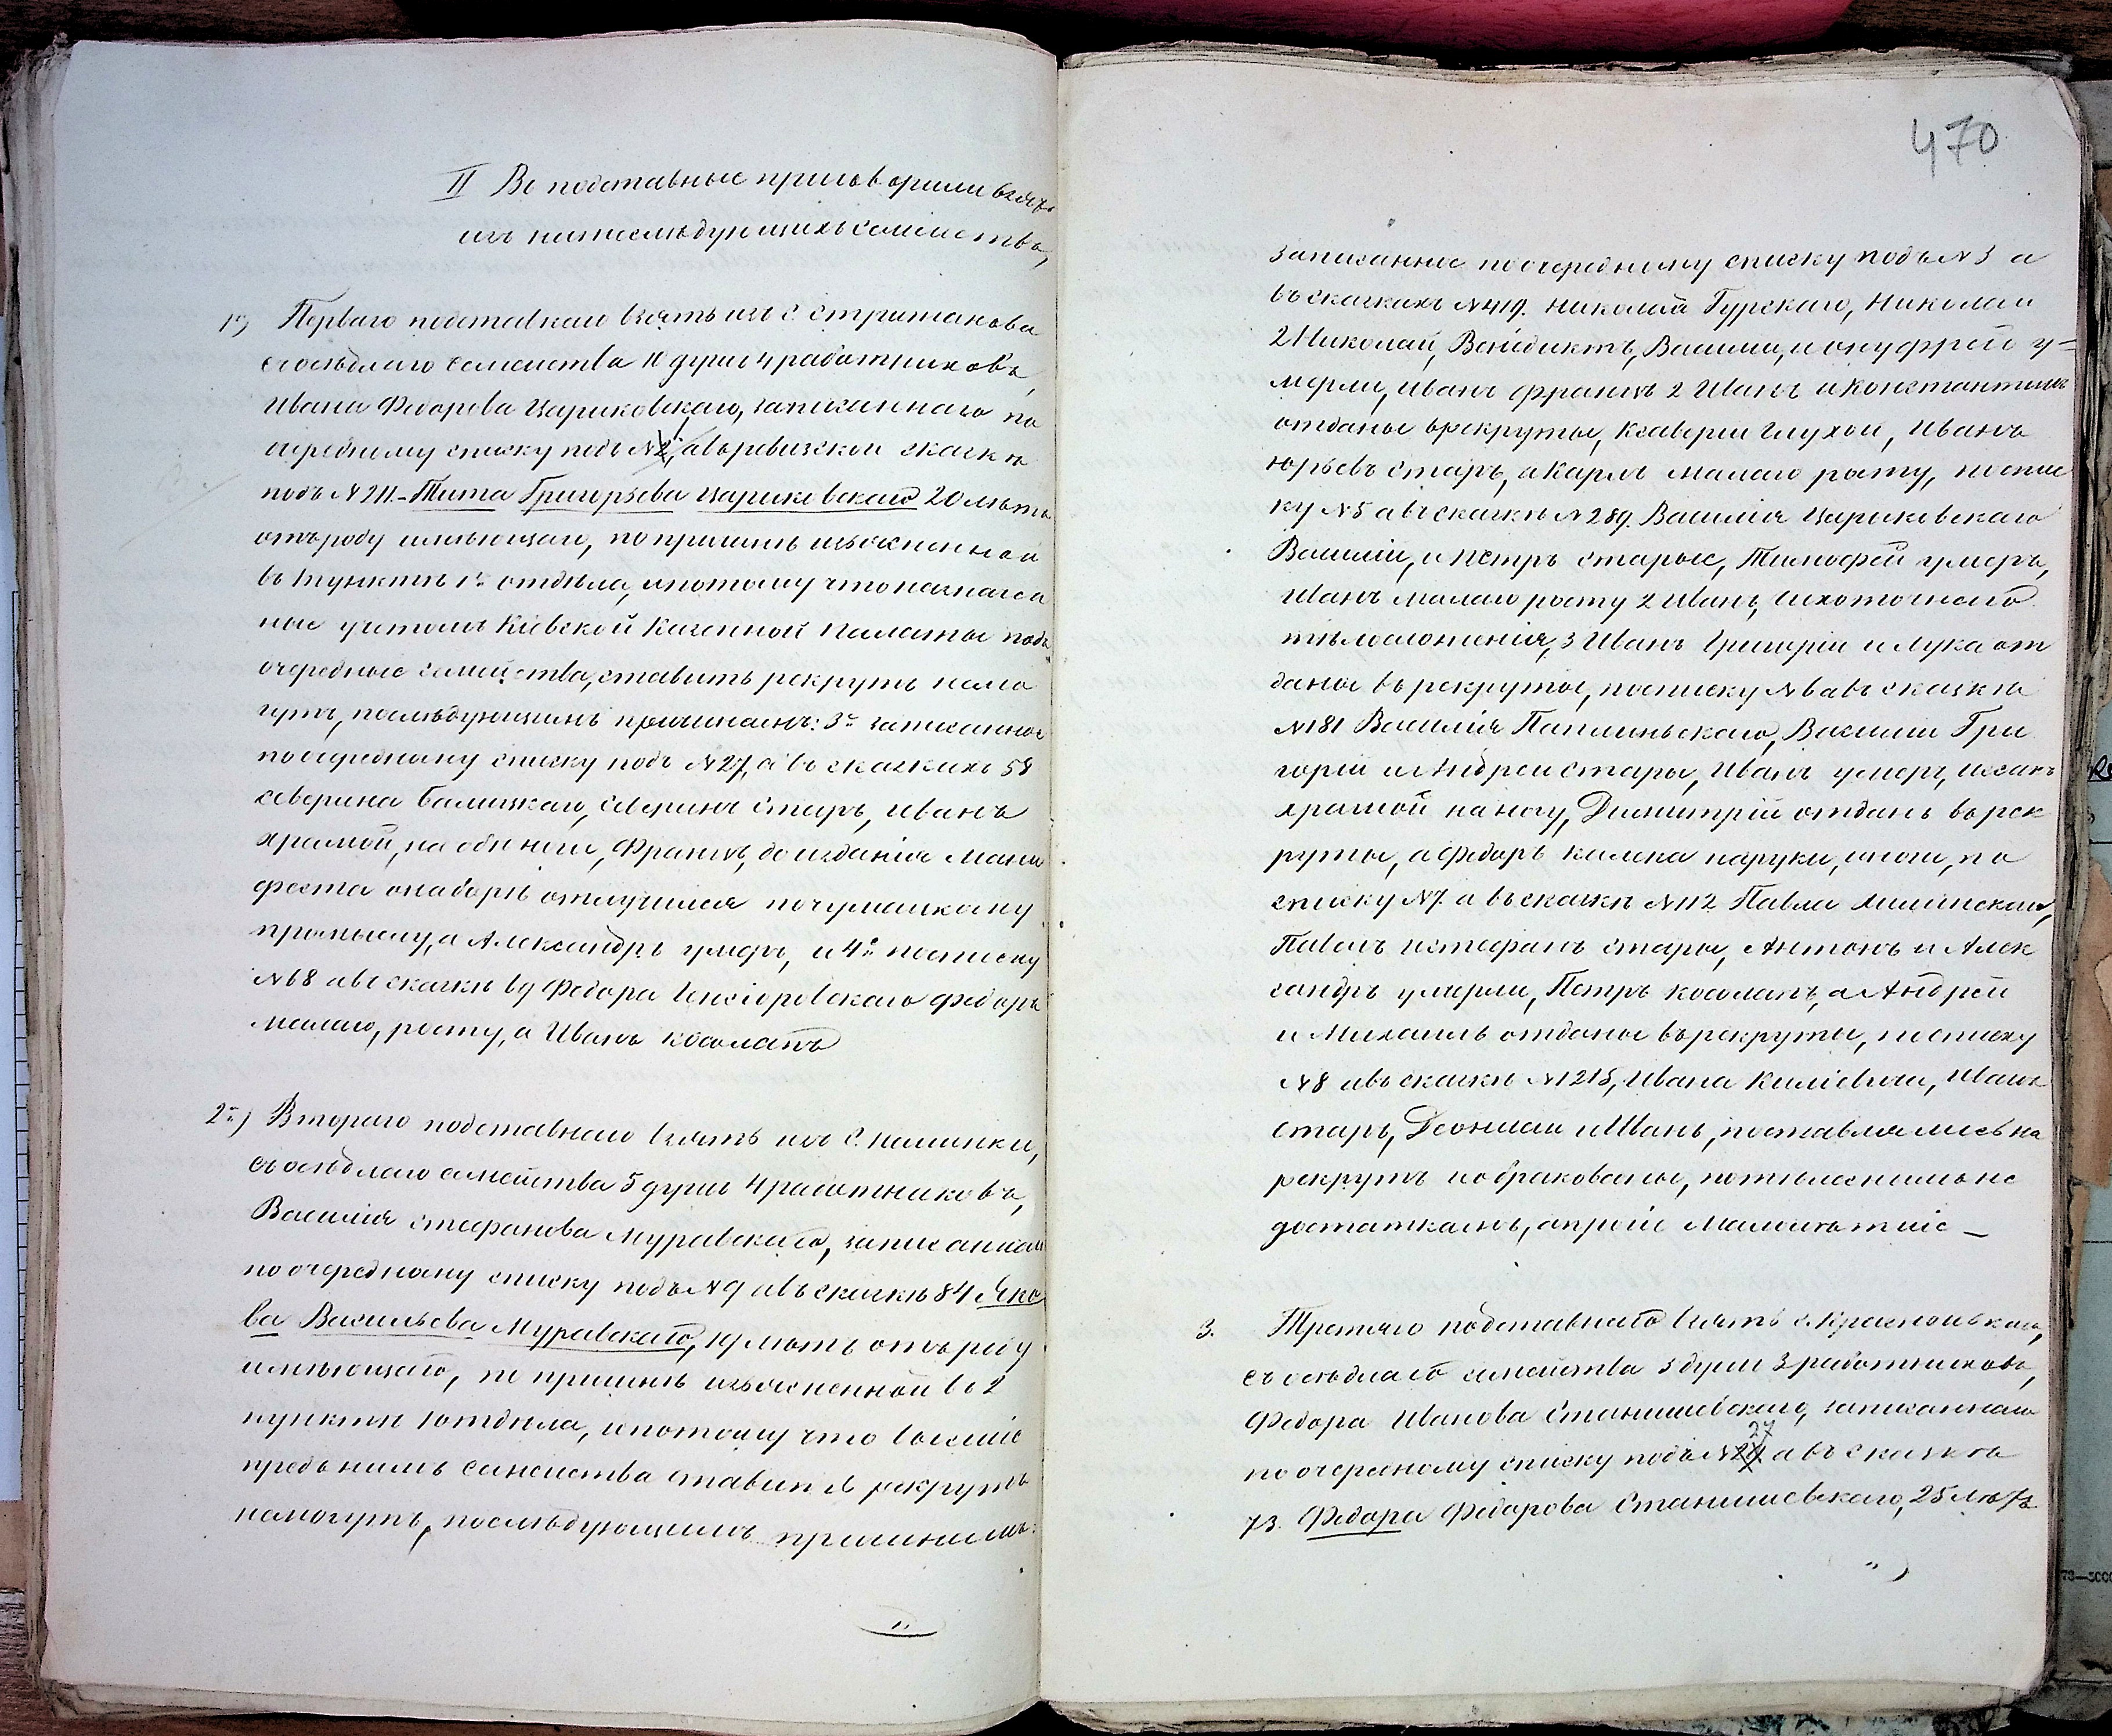 II Во подставные приговорили взять
изъ нижеслѣдующихъ семействъ,
1е) Перваго подставнаго взять изъ с. Стрижакова
съ осѣдлаго семейства 11 душъ 4 работниковъ,
Ивана Федорова Цариковскаго, записаннаго по
очередному списку подъ № 1, а въ ревизской сказкѣ
подъ № 211. – Тита Григорьева Цариковскаго 20 лѣтъ
отъ роду имѣющаго, по причинѣ изъясненной
въ 1 пунктѣ 1го отдѣла, и потому что
ные учетомъ Кіевской Казенной Палаты подъ
очередные семейства, ставить рекрутъ немо
гутъ, послѣдующимъ причинамъ: 3е записанное
по очередному списку подъ № 27, а въ сказкахъ 58
Северина Балицкаго, Северинъ старъ, Иванъ
храмой, на обѣ ноги, Францъ, до изданія Мани
феста о наборѣ отлучился по чумацкому
промыслу, а Александръ умеръ, и 4е по списку
№ 68 а въ сказкѣ 69 Федора Федоръ
малаго, росту, а Иванъ косолапъ
2е) Втораго подставнаго взять изъ с.
съ осѣдлаго семейства 5 душъ 4 работниковъ,
Василія Стефанова Муравскаго, записаннаго
по очередному списку подъ № 9 а въ сказкѣ 84 Яко
ва Васильева Муравскаго, 19 лѣтъ отъ роду
имѣющаго, по причинѣ изъясненной во 2
пунктѣ 1 отдѣла, и потому что высшіе
предъ нимъ семейства ставить рекрутъ
немогутъ, послѣдующимъ причинамъ:
470
записанное по очередному списку подъ № 3 а
въ сказкахъ № 419. Николай Гурскаго, Николай
2 Николай, Венедиктъ, Василий, и Онуфрей у=
мерли, Иванъ Францъ 2 Иванъ и Константинъ
отданы врекруты, Ксаверий глухой, Иванъ
Юрьевъ старъ, а Карлъ малаго росту, по спис
ку № 5 а въ сказкѣ № 289. Василія Цариковскаго
Василій, и Петръ старые, Тимофей умеръ,
Иванъ малаго росту 2 Иванъ,
тѣлосложенія, 3 Иванъ Григорій и Лука от
даны въ рекруты, по списку № 6 а въ сказкѣ
№ 181 Василія Василий Гри
горій и Андрей стары, Иванъ умеръ,
храмой на ногу, Димитрій отданъ въ рек
руты, а Федоръ калека на руки, и ноги, по
списку № 7. а въ сказкѣ № 112 Павла
Павелъ и Стефанъ стары, Антонъ и Алек
сандръ умерли, Петръ косолапъ, а Андрей
и Михаилъ отданы въ рекруты, по списку
№ 8 а въ сказкѣ № 1215, Ивана Иванъ
старъ, и Иванъ, поставлялись на
рекрутъ но бракованы, по тѣлеснымъ не
достаткамъ, а прочіе малолѣтніе –
3. Третяго подставнаго взять с.
съ осѣдлаго семейства 5 душъ 3 работниковъ,
Федора Иванова Станишевскаго, записаннаго
по очередному списку подъ № 27 а въ сказкѣ
73. Федора Федорова Станишевскаго, 25 лѣтъ